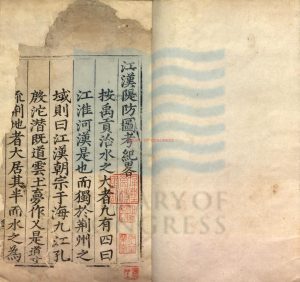 江漢隄防圖考紀畧
按禹貢治水之大者凡有四曰
江淮河漢是也而獨於荆州之
域則曰江漢朝宗于海九江孔
殷沱潛既道雲土夢作乂是導
利地者大居其半而水之為
LIBRARY OF
CONGRESS